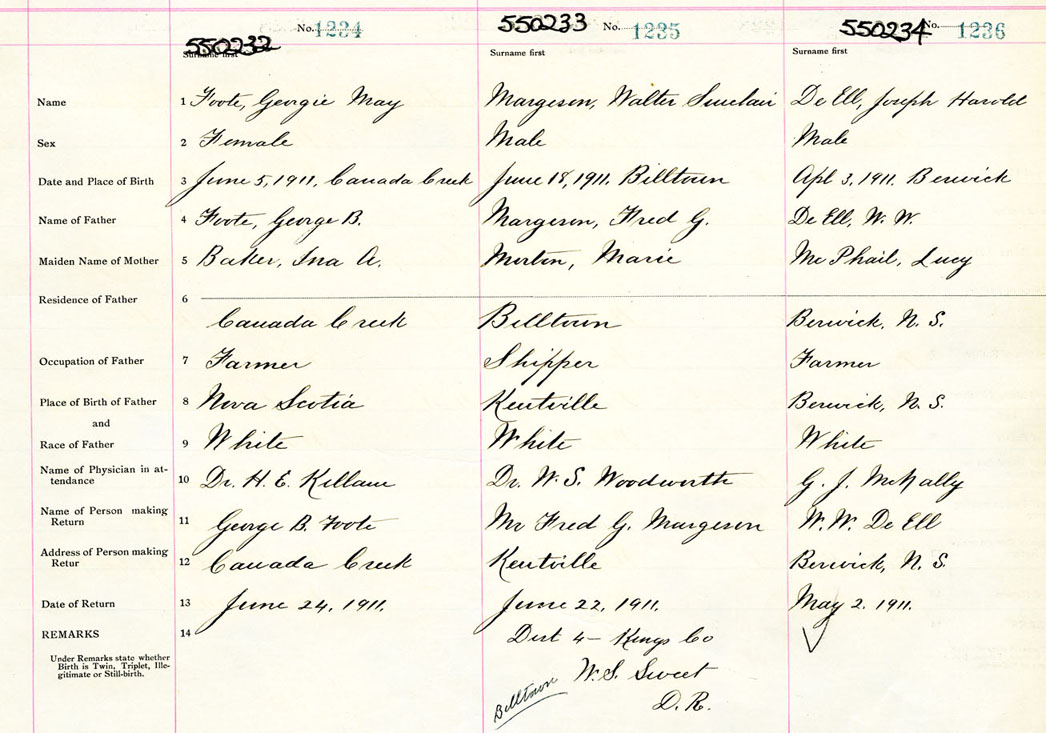 550232 No. 1234 550233 No. 1235 550234 No. 1236
Surname first Surname first Surname first
Name 1 Foote, Georgie May Margeson, Walter Sinclair De Ell, Joseph Harold
Sex 2 Female Male Male
Date and Place of Birth 3 June 5, 1911, Canada Creek June 18, 1911. Billtown Apl 3, 1911. Berwick
Name of Father 4 Foote, George B. Margeson, Fred G. De Ell, W. W.
Maiden Name of Mother 5 Baker, Ina A. Morton, Marie McPhail, Lucy
Residence of Father 6
Canada Creek Billtown Berwick, N. S.
Occupation of Father 7 Farmer Shipper Farmer
Place of Birth of Father 8 Nova Scotia Kentville Berwick, N. S.
and
Race of Father 9 White White White
Name of Physician in at-
tendance 10 Dr. H. E. Killam Dr. W. S. Woodworth G. J. McNally
Name of Person making
Return 11 George B. Foote Mr Fred G. Margeson W. W. De Ell
Address of Person making
Retur 12 Canada Creek Kentville Berwick, N. S.
Date of Return 13 June 24, 1911. June 22, 1911. May 2. 1911.
REMARKS 14 Dist 4 - Kings Co
Under Remarks state whether
Birth is Twin, Triplet, Ille-
gitimate or Still-birth.
W. S. Sweet
Billtown D. R.